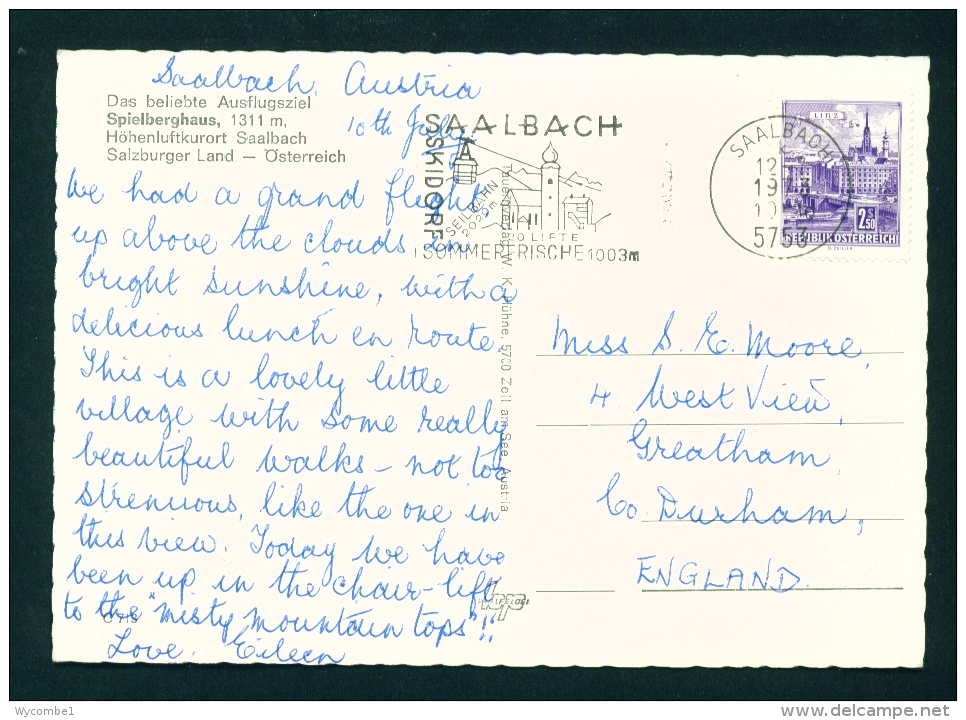 Saalbach, Austria
10th July
Das beliebte Ausflugsziel
Spielberghaus, 1311 m,
Höhenluftkurort Saalbach
Salzburger Land — Österreich
We had a grand flight
up above the clouds in
bright sunshine, with a
delicious lunch en route.
This is a lovely little
village with some really
beautiful walks – not too
strenuous, like the one in
this view. Today we have
been up in the chair-lift
to the "misty mountain tops"!!
Love. Eileen
SAALBACH
SKIDORF
SEILBAHN
2020m
20 LIFTE
SOMMERFRISCHE 1003m
W. K. Plühne, 5700 Zell am See, Austria
SAALBACH
5753
LINZ
2.50 S
REPUBLIK ÖSTERREICH
Miss S. E. Moore,
4. West View,
Greatham,
Co. Durham,
ENGLAND.
Wycombe1
delcampe.net